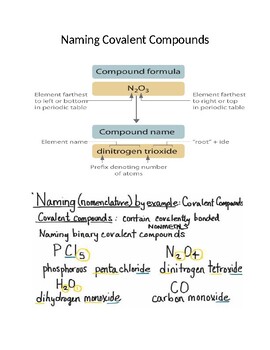 Naming Covalent Compounds
Compound formula
N₂O₃
Element farthest
to left or bottom
in periodic table
Element farthest
to right or top
in periodic table
Compound name
Element name
"root" + ide
dinitrogen trioxide
Prefix denoting number
of atoms
Naming (nomenclature) by example: Covalent Compounds
Covalent compounds: contain covalently bonded
NONMETALS
Naming binary covalent compounds
PCl₅ N₂O₄
phosphorous pentachloride dinitrogen tetroxide
H₂O CO
dihydrogen monoxide carbon monoxide